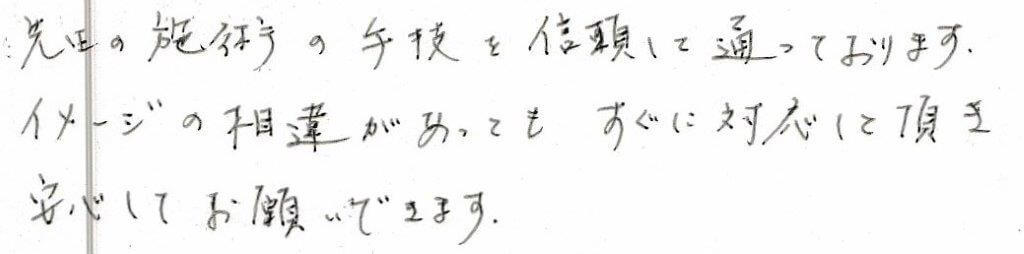 先生の施術の手技を信頼して通っております.
イメージの相違があっても すぐに対応して頂き
安心してお願いできます.